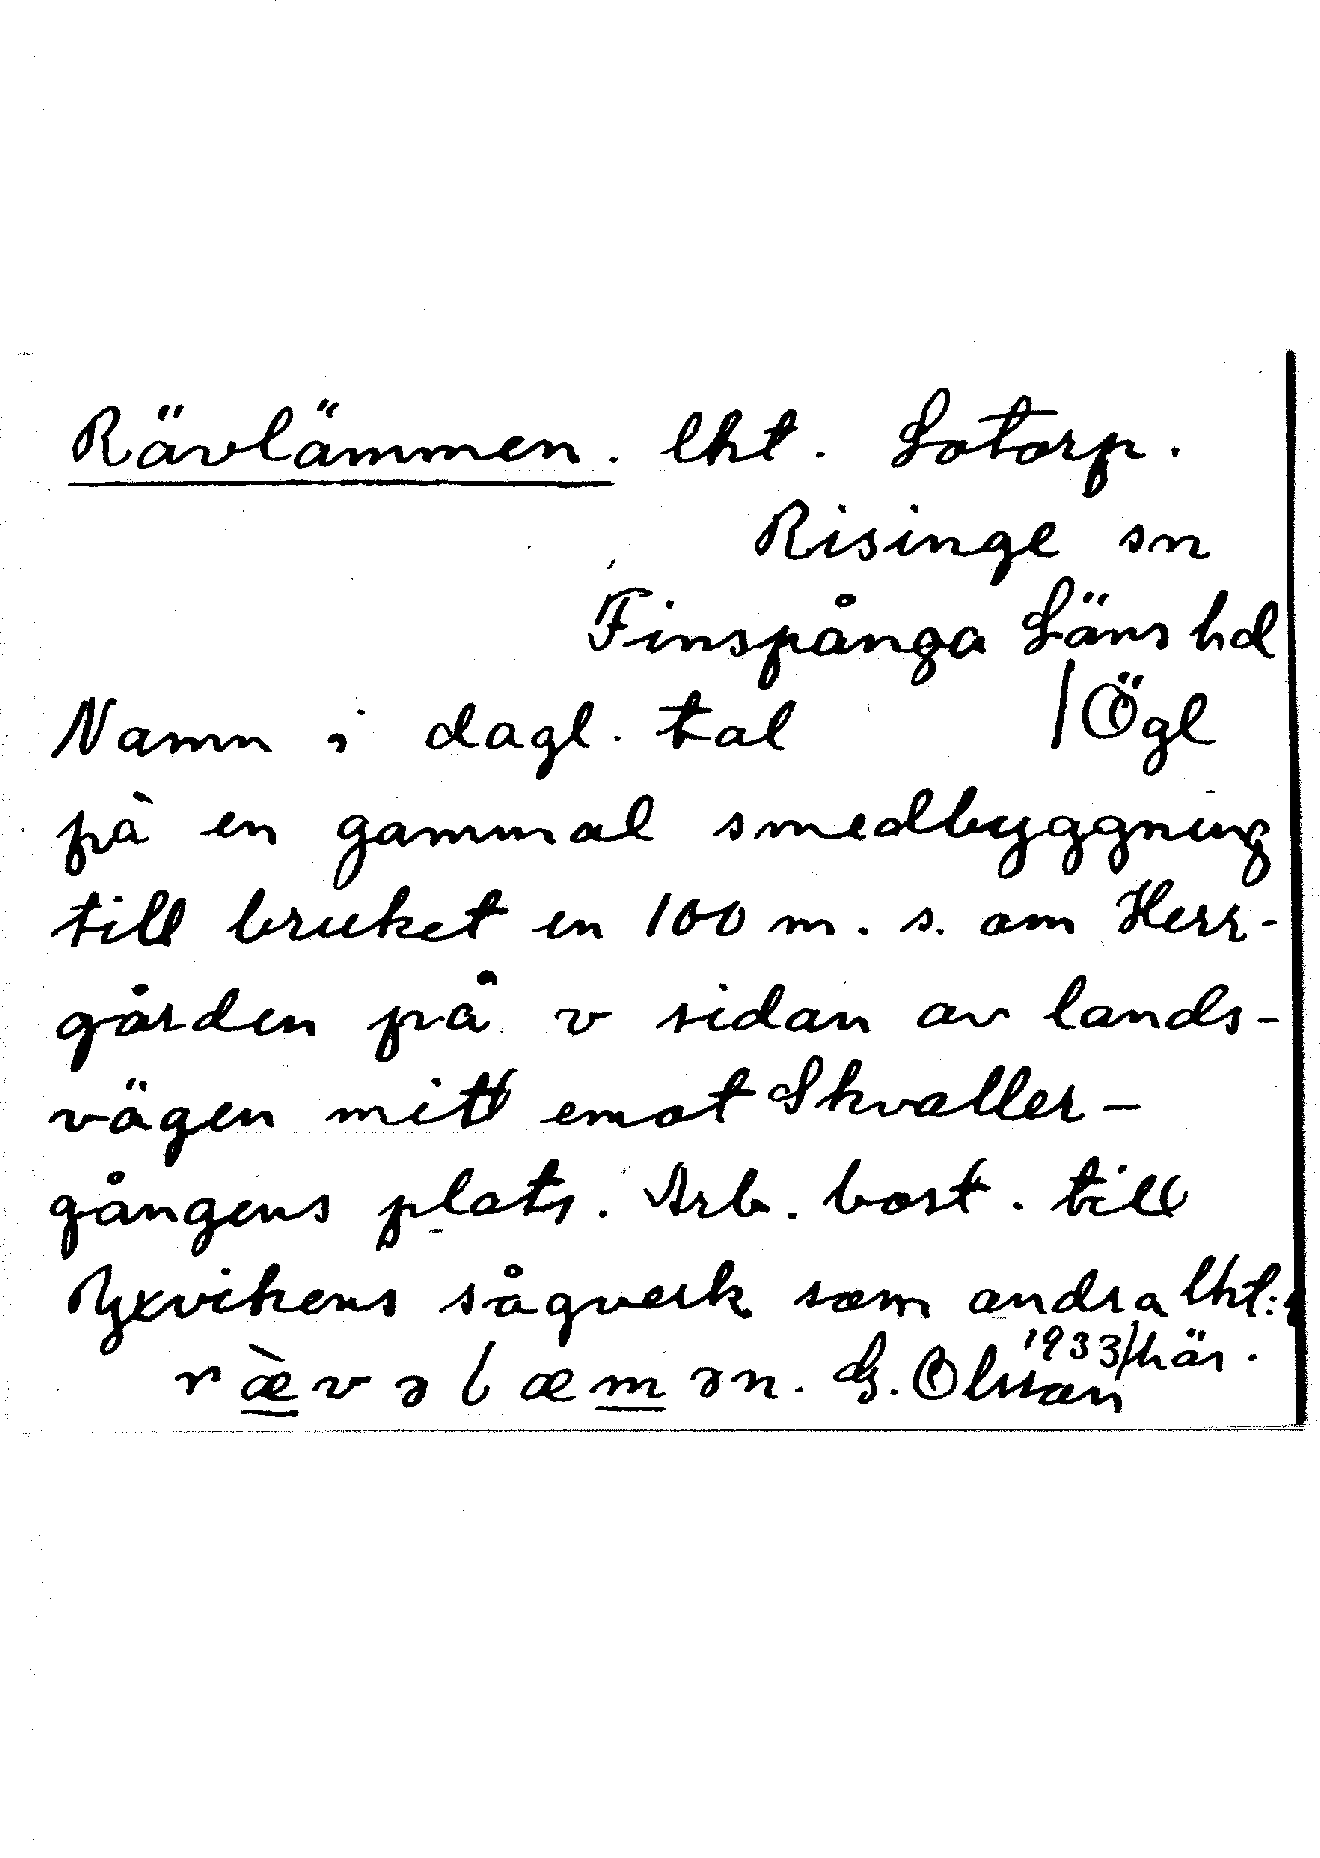 Rävlämmen. lht. Lotorp.
Risinge sn
Finspånga Läns hd
Namn i dagl. tal /Ögl
på en gammal smedbyggning
till bruket en 100 m. s. om Herr-
gården på v sidan av lands-
vägen mitt emot Skvaller-
gångens plats. Arb. bost. till
Yxvikens sågverk som andra lht:r
/här.
rævəlæmən. G. Olsson 1933